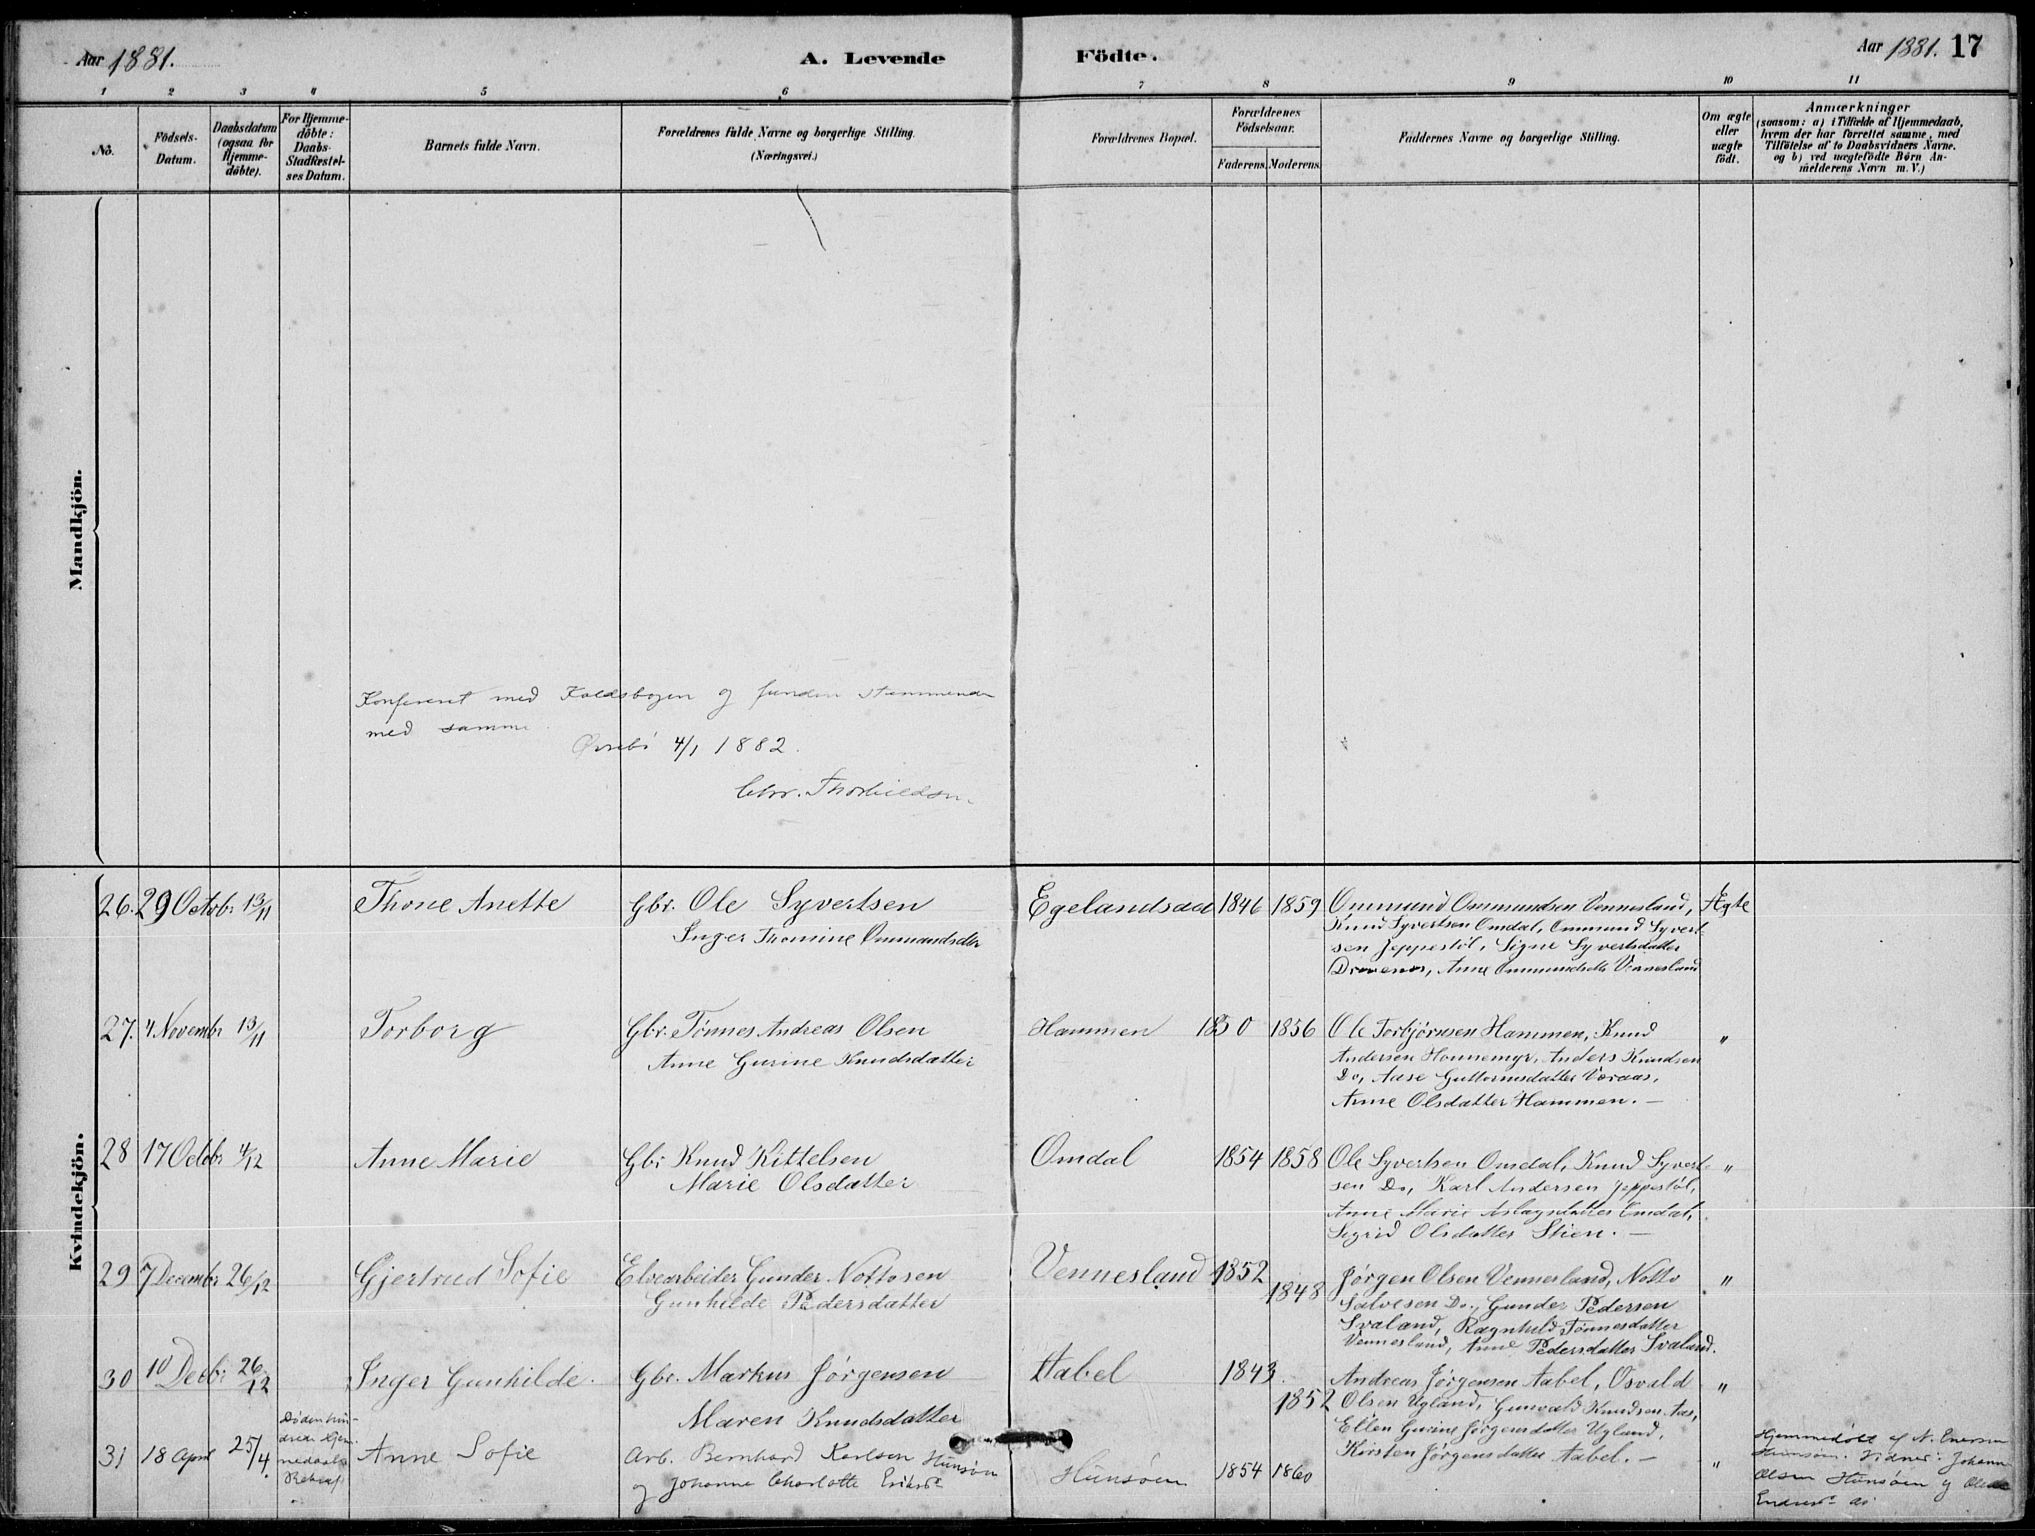 Aar 1881.
A. Levende Födte.
Aar 1881. 17
1 2 3 4 5 6 7 8 9 10 11
No.
Födsels-Datum.
Daabsdatum (ogsaa for Hjemme-döbte).
For Hjemme-döbte: Daabs-Stadfæstel-ses Datum.
Barnets fulde Navn.
Forældrenes fulde Navne og borgerlige Stilling.
(Næringsvei.)
Forældrenes Bopæl.
Forældrenes Födselsaar.
Faderens. Moderens.
Faddernes Navne og borgerlige Stilling.
Om ægte eller uægte födt.
Anmærkninger
(saasom: a) i Tilfælde af Hjemmedaab,
hvem der har forrettet samme, med
Tilföielse af to Daabsvidners Navne.
og b) ved uægtefödte Børn An-
melderens Navn m. V.)
Mandkjön.
Konfereret med Kaldsbogen og funden stemmende
med samme.
Øvrebö 4/1 1882.
Chr. Thorkildsen
Kvindekjön.
26. 29 Octobr 13/11 Thone Anette Gbr. Ole Syvertsen Egelandsaa 1846 1859 Ommund Ommundsen Vennesland, Ægte
Inger Thomine Ommundsdtr
Knud Syvertsen Omdal, Ommund Syvert-
sen Jeppestøl, Signe Syvertsdatter
Drivenes, Anne Ommundsdtr Vennesland
27. 4 Novembr 13/11 Torborg Gbr. Tønnes Andreas Olsen Hammen 1850 1856 Ole Torbjørnsen Hammen, Knud "
Anne Gurine Knudsdatter
Andersen Honnemyr, Anders Knudsen
Do, Aase Guttormsdatter Voraas,
Anne Olsdatter Hammen. —
28 17 Octobr 4/12 Anne Marie Gbr Knud Kittelsen Omdal 1854 1858 Ole Syvertsen Omdal, Knud Syvert- "
Marie Olsdatter
sen Do, Karl Andersen Jeppestøl,
Anne Marie Aslagsdatter Omdal,
Sigrid Olsdatter Stien. —
29 7 Decembr 26/12 Gjertrud Sofie Elvearbeider Gunder Nottosen Vennesland 1852 1848 Jørgen Olsen Vennesland, Notto "
Gunhilde Pedersdatter
Salvesen Do., Gunder Pedersen
Svaland, Ragnhild Tønnesdatter
Vennesland, Anne Pedersdatter Svaland.
30 10 Decbr 26/12 Inger Gunhilde. Gbr. Markus Jørgensen Aabel 1843. 1852 Andreas Jørgensen Aabel, Osvald "
Maren Knudsdatter
Olsen Ugland, Gunvald Knudsen Aas,
Ellen Gurine Jørgensdatter Ugland,
Kirsten Jørgensdatter Aabel. —
31 18 April 25/4. Døden hin-
drede Hjem-
medaabs
Anne Sofie Arb. Bernhard Karlsen Hunsøen
og Johanne Charlotte Eriksd. Hunsøen 1854 1860 "
Hjemmedøbt af N. Enersen
Hunsøen. Vidner: Johan
Olsen Hunsøen og